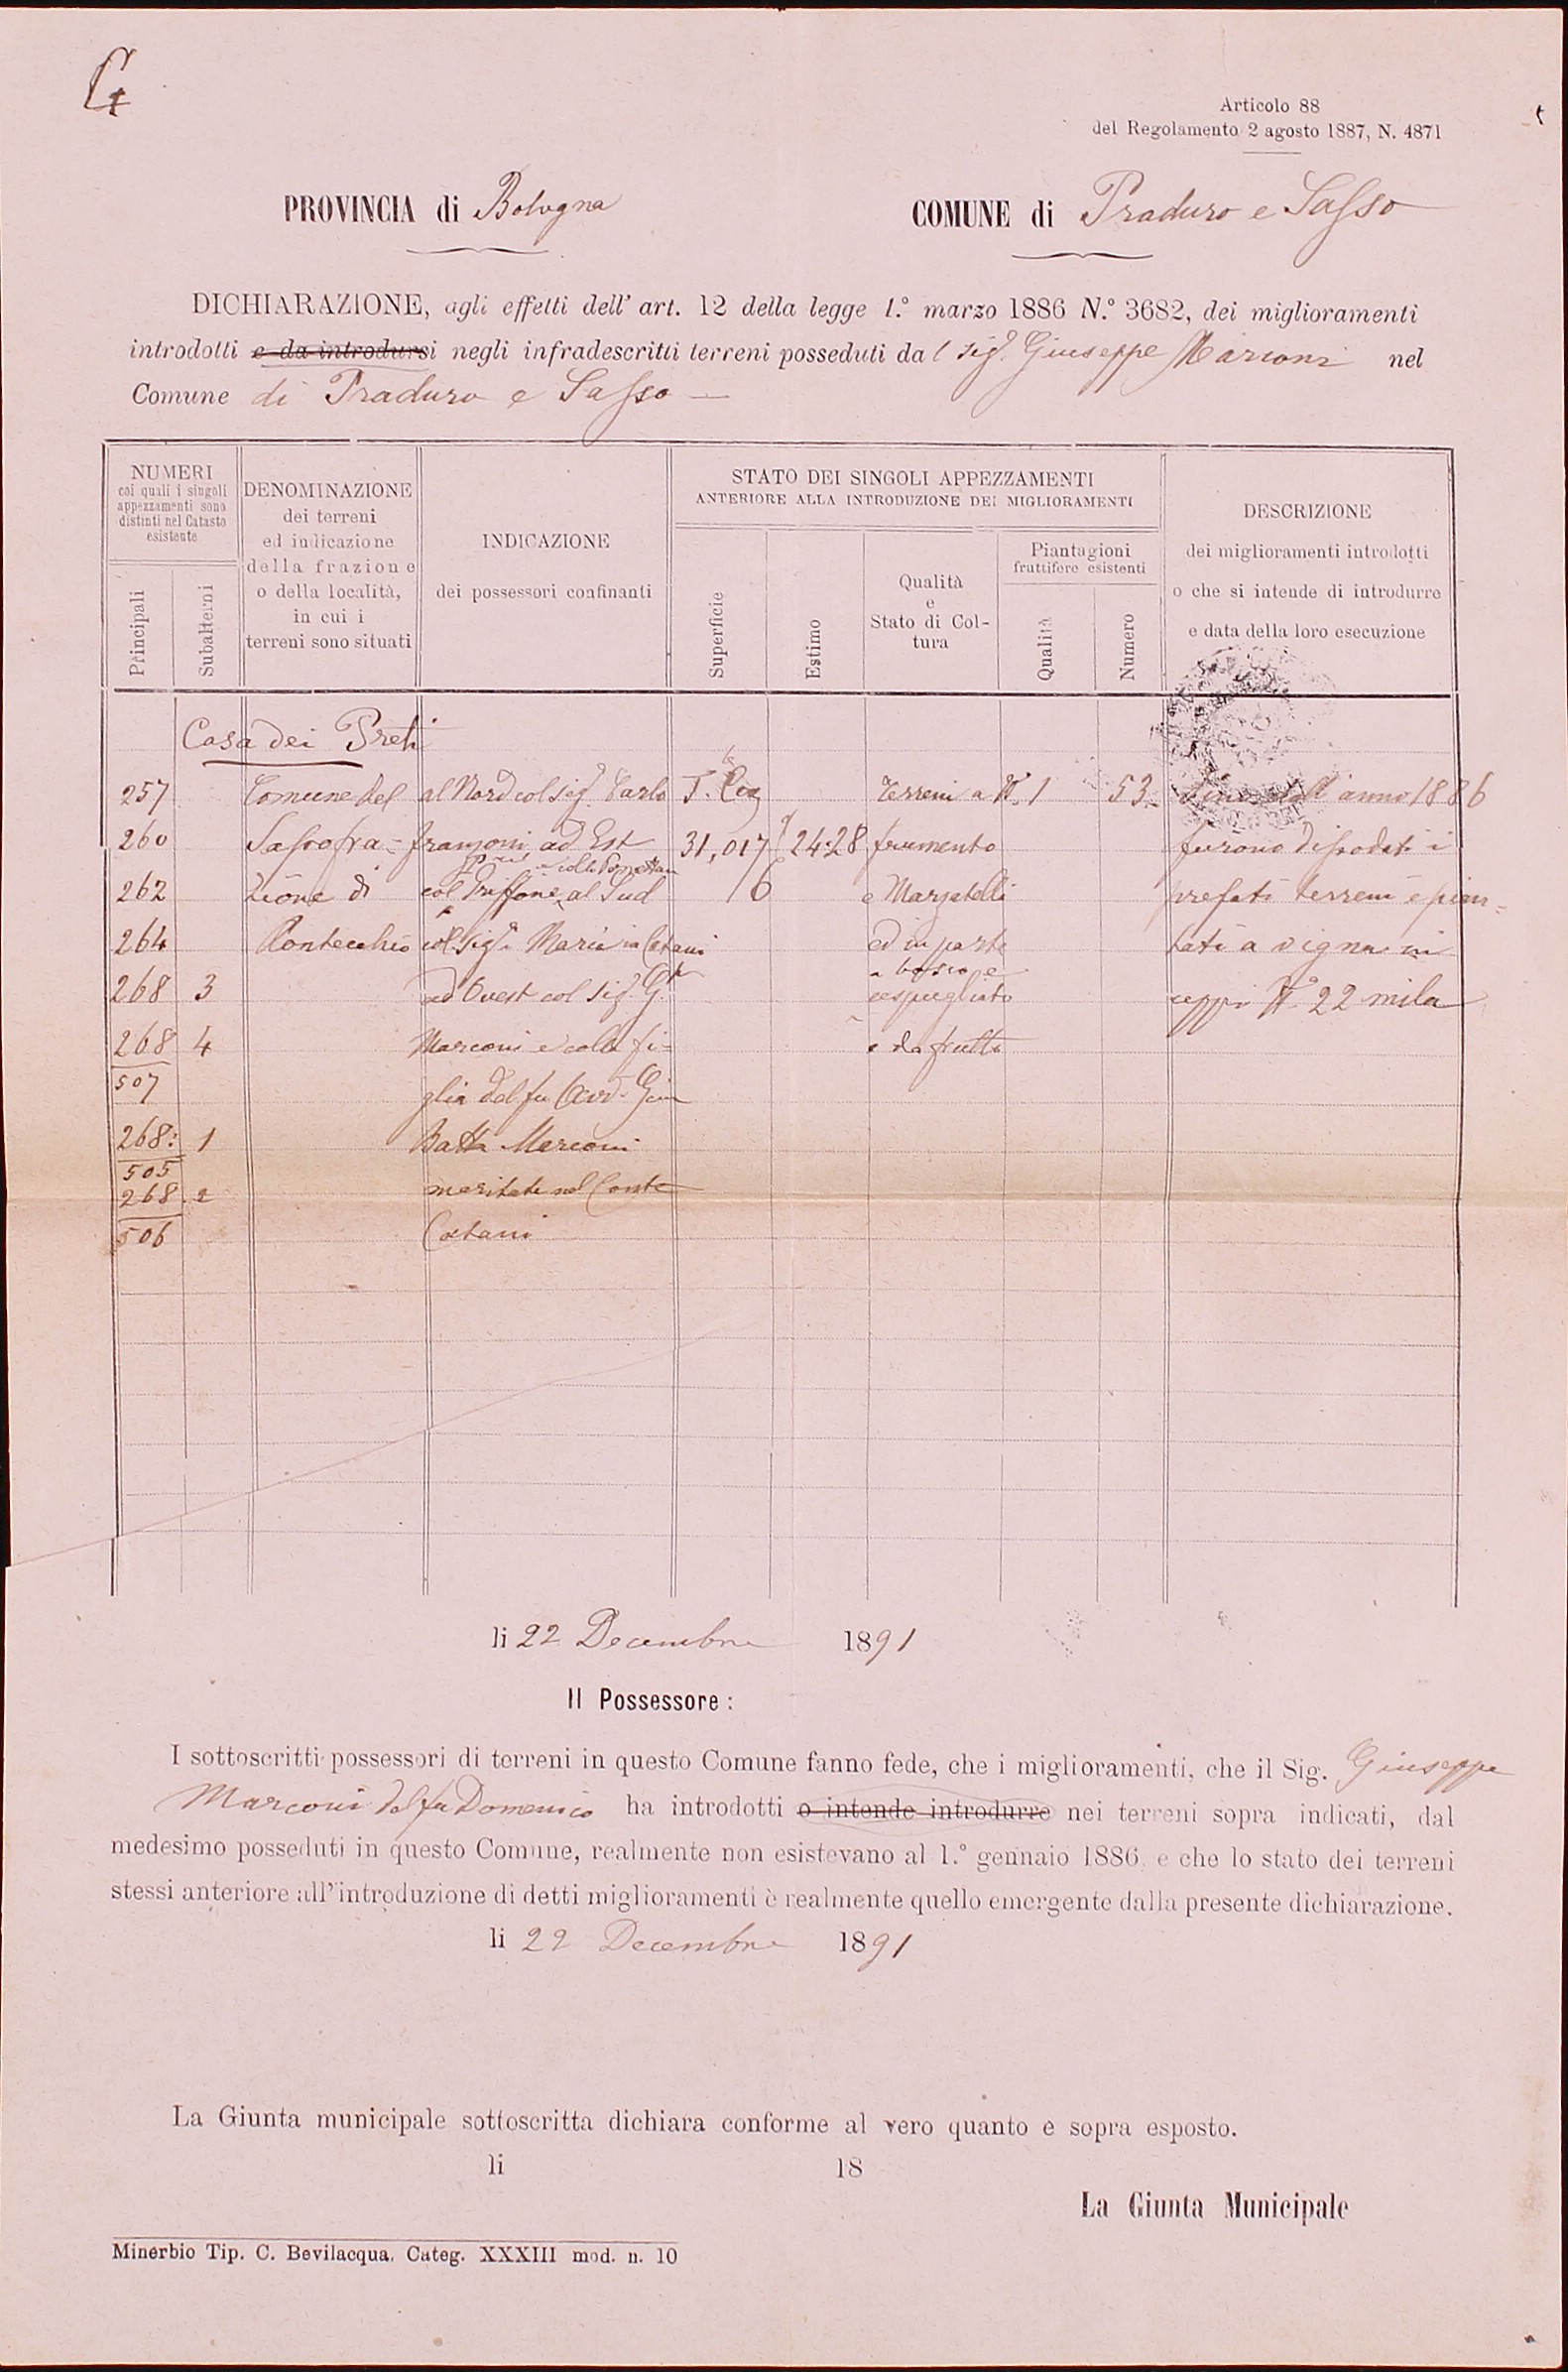 Articolo 88
del Regolamento 2 agosto 1887, N. 4871
PROVINCIA di Bologna
COMUNE di Praduro e Sasso
DICHIARAZIONE, agli effetti dell' art. 12 della legge 1.° marzo 1886 N.° 3682, dei miglioramenti
introdotti e da introdursi negli infradescritti terreni posseduti dal sig. Giuseppe Marconi nel
Comune di Praduro e Sasso
NUMERI
coi quali i singoli
appezzamenti sono
distinti nel Catasto
esistente
Principali
Subalterni
DENOMINAZIONE
dei terreni
ed indicazione
della frazione
o della località,
in cui i
terreni sono situati
INDICAZIONE
dei possessori confinanti
STATO DEI SINGOLI APPEZZAMENTI
ANTERIORE ALLA INTRODUZIONE DEI MIGLIORAMENTI
Superficie
Estimo
Qualità
e
Stato di Col-
tura
Piantagioni
fruttifere esistenti
Qualità
Numero
DESCRIZIONE
dei miglioramenti introdotti
o che si intende di introdurre
e data della loro esecuzione
Casa dei Preti
257 Comune del al Nord col sig. Carlo Terreni a N. 1 53 anno 1886
260 Sasso fra= franzoni ad Est 31,017 24:28 frumento furono dissodati i
262 zione di col Griffone al Sud 6 e Marzatelli prefati terreni e pian=
264 Pontecchio col sig. Maria in Catani ed in parte tati a vigna in
a bosco e
268 3 ad Ovest col sig. G. cespugliato ceppi N.° 22 mila
268 4 Marconi e colla fi= e da frutto
507 glia del fu Giu
268: 1 Batta Marconi
505
268 2 maritata nel Conte
506 Catani
li 22 Decembre 1891
Il Possessore:
I sottoscritti possessori di terreni in questo Comune fanno fede, che i miglioramenti, che il Sig. Giuseppe
Marconi del fu Domenico ha introdotti o intende introdurre nei terreni sopra indicati, dal
medesimo posseduti in questo Comune, realmente non esistevano al 1.° gennaio 1886, e che lo stato dei terreni
stessi anteriore all'introduzione di detti miglioramenti è realmente quello emergente dalla presente dichiarazione.
li 22 Decembre 1891
La Giunta municipale sottoscritta dichiara conforme al vero quanto e sopra esposto.
li 18
La Giunta Municipale
Minerbio Tip. C. Bevilacqua. Categ. XXXIII mod. n. 10